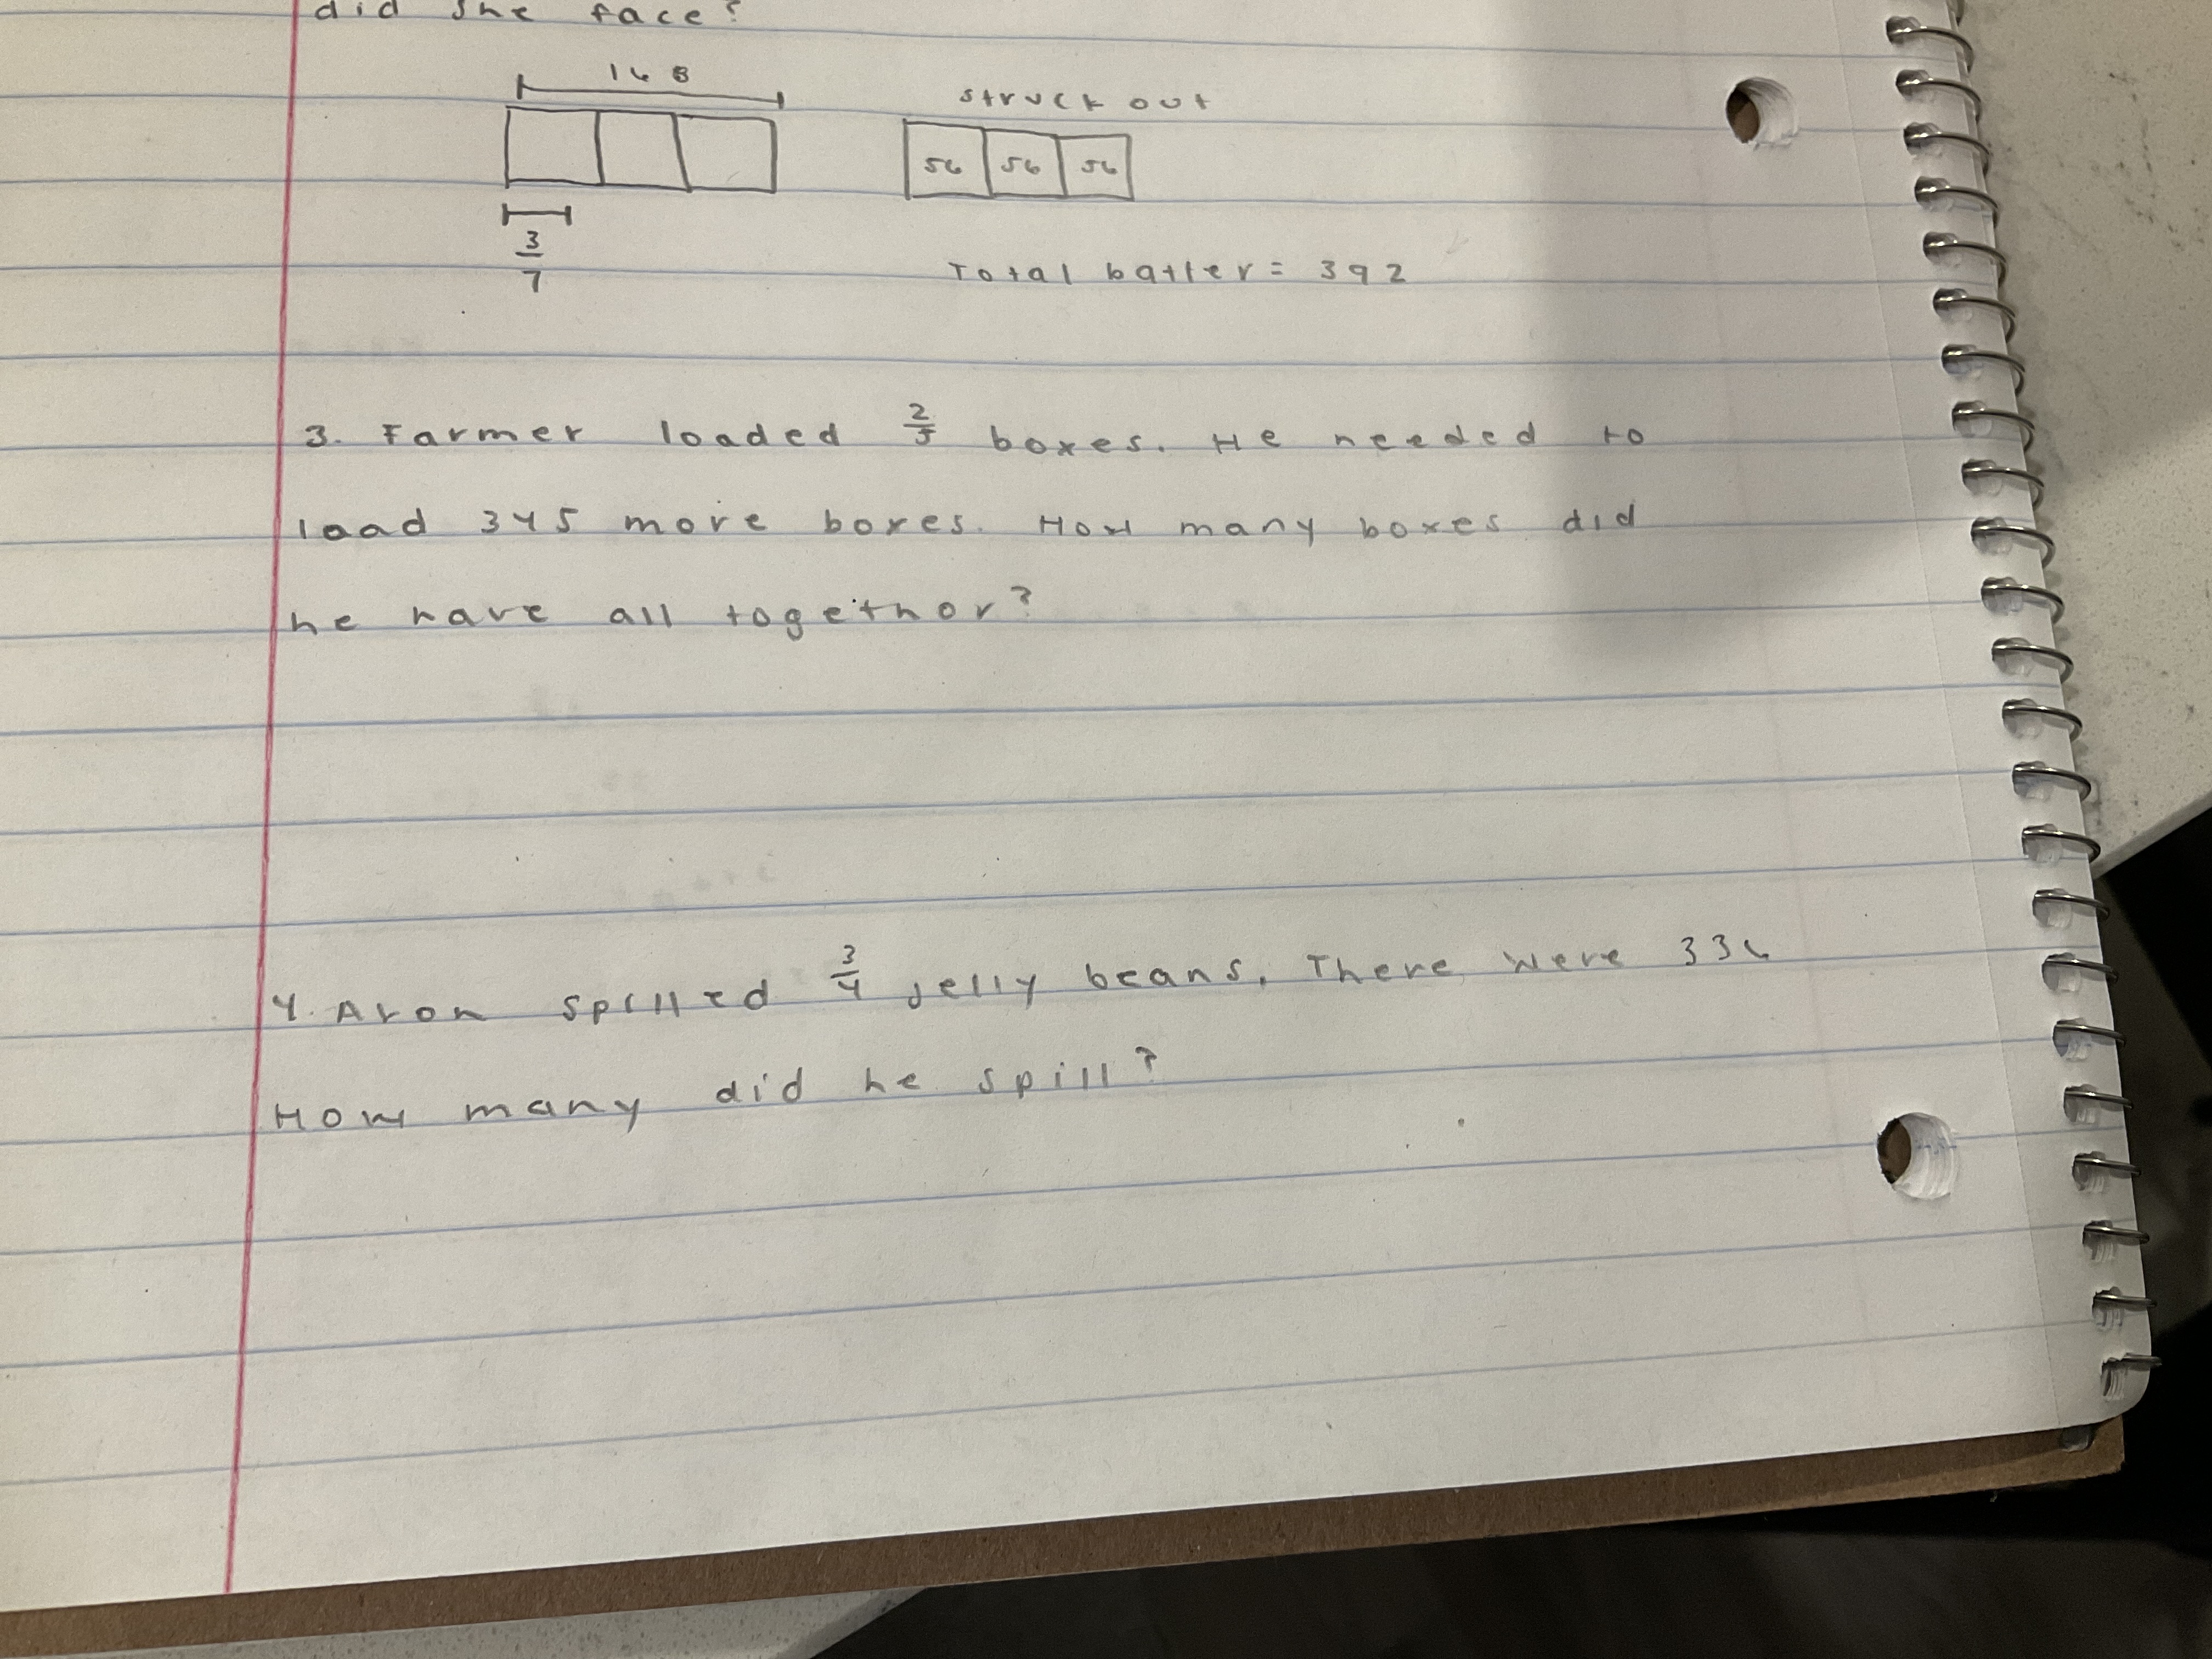 did she face?
168
struck out
56 56 56
3/7
Total batter = 392
3. Farmer loaded 2/5 boxes. He needed to
load 345 more boxes. How many boxes did
he have all togethor?
4. Aron spilled 3/4 jelly beans. There were 336
How many did he spill?